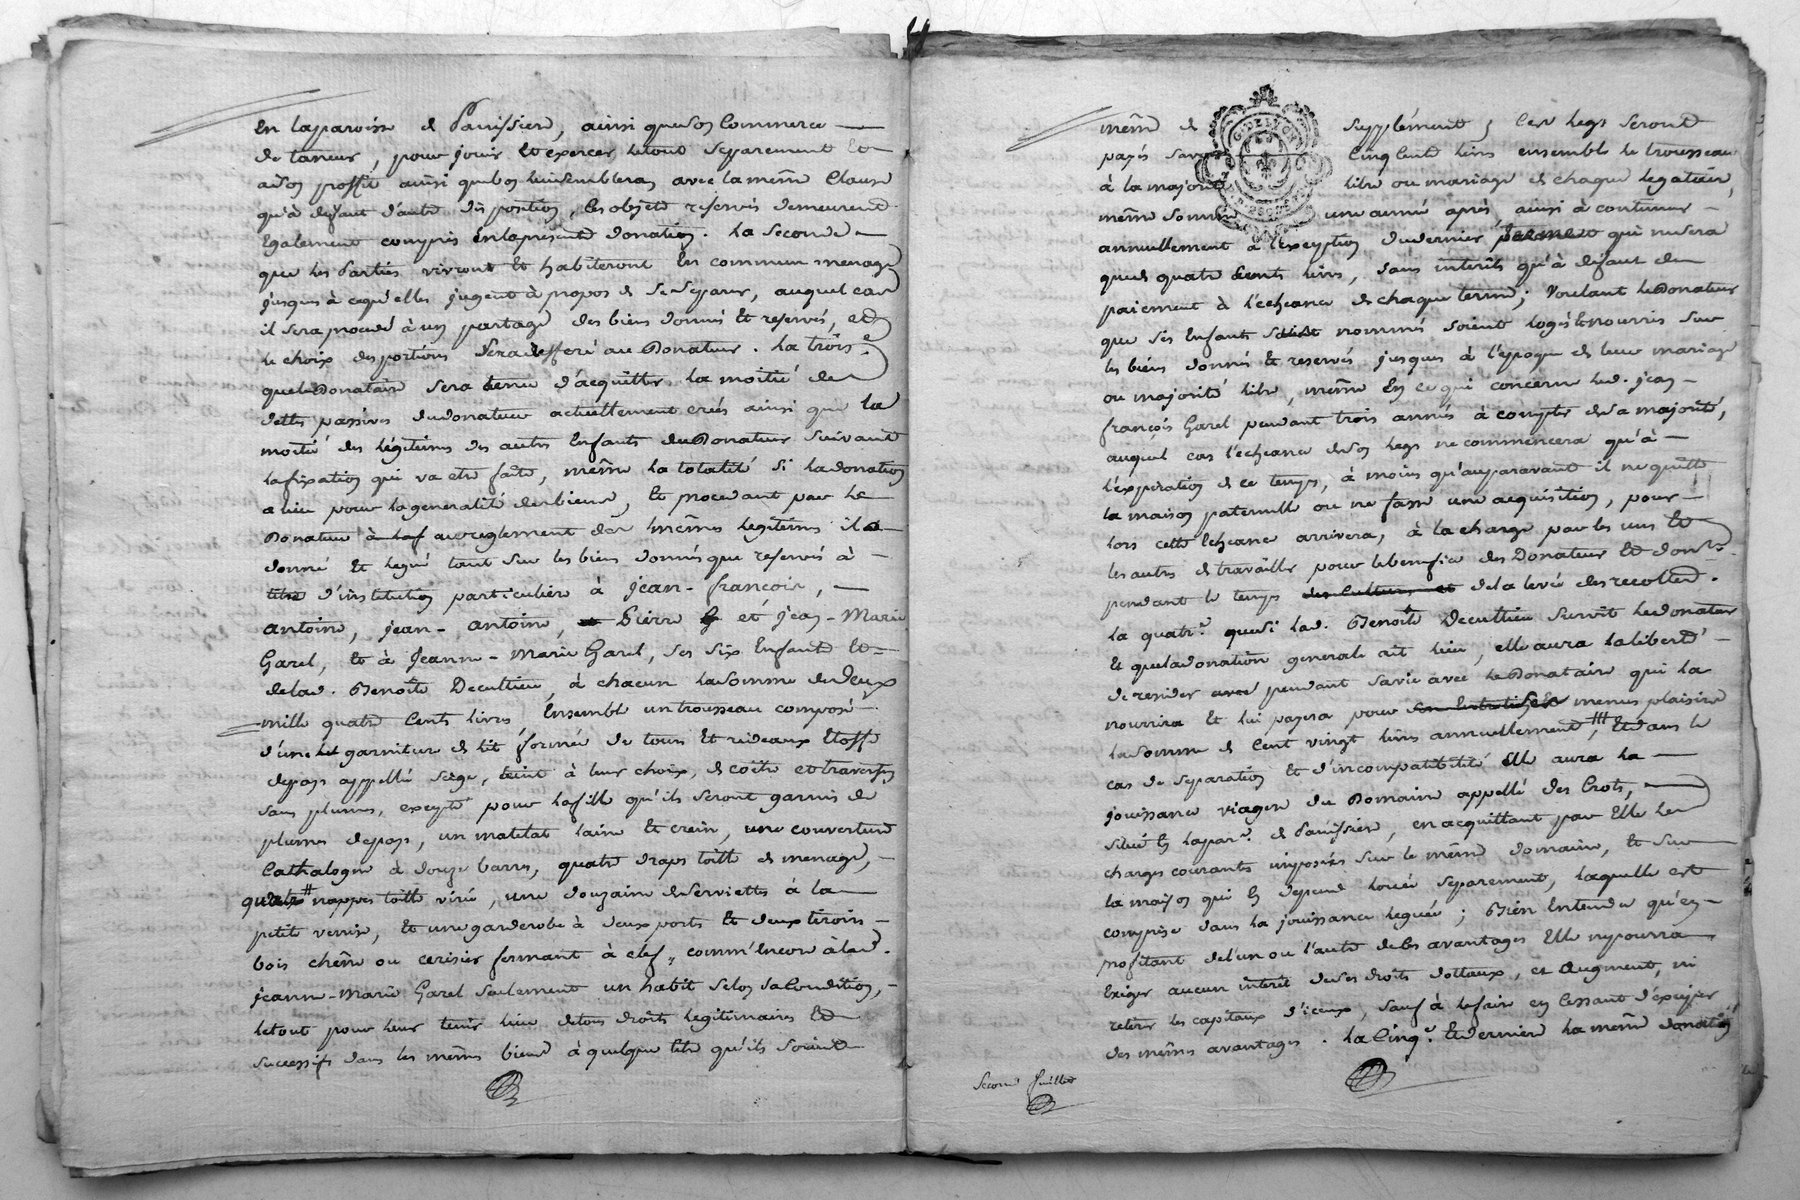 En laparoisse de Panissiere, ainsi queson Commerce
de taneur, pour jouir Et exercer letout separement Et
ason proffit ainsi quebon luisemblera, avec la même Clause
qu'à deffaut d'autre disposition, les objets reservés demeureront
Egalement compris enlapresente donation. la seconde
que les Parties vivront Et habiteront En commun menage
jusques à cequ'elles jugent à propos de se separer, auquel cas
il sera procedé à un partage des biens donnés Et reservés, et
le choix des portions sera defferé au Donateur. la trois.e
que le Donataire sera tenu d'acquitter la moitié des
dettes passives dudonateur actuellement créés ainsi que la
moitié des légitimes des autres Enfants du Donateur suivant
lafixation qui va etre faite, même la totalité si ladonation
a lieu pour lageneralité desbiens, Et procedant par le
Donateur à laf aureglement des mêmes legitimes il a
donné Et legué tant sur les biens donnés que reservés à
titre d'institution particuliere à jean-françois,
antoine, jean-antoine, Pierre et jean-Marie
Garel, Et à Jeanne-Marie Garel, ses six Enfants Et
delad. Benoite Decultieu, à chacun lasomme dedeux
mille quatre Cents livres, Ensemble un trousseau composé
d'une garniture de lit formée de tours Et rideaux Etoffe
depays appellé sarge, teint à leur choix, de coitre et traversin
sans plumes, excepté pour lafille qu'ils seront garnis de
plumes depays, un matelat laine Et crein, une couverture
Cathalogne à douze barres, quatre draps toille de menage,
quatre nappes toille virée, une douzaine de serviettes à la
petite venise, Et une garderobe à deux portes Et deux tiroirs
bois chêne ou cerisier fermant à clef, comm'Encore à lad.
jeanne-Marie Garel seulement un habit selon sa Condition,
letout pour leur tenir lieu detous droits legitimaires Et
successifs dans les mêmes biens à quelque titre qu'ils soient
même de supplément; Ces legs seront
payés savoir Cinq Cent livres ensemble le trousseau
à la majorité libre ou mariage de chaque legataire,
même somme une année après, ainsi à continuer
annuellement à l'exception dudernier qui nesera
que de quatre Cents livres, sans interêts qu'à deffaut de
paiement à l'echeance de chaque terme; Voulant le Donateur
que ses Enfants nommés soient logés Et nourris sur
les biens donnés Et reservés jusques à l'epoque de leur mariage
ou majorité libre, même En ce qui concerne led. jean
françois Garel pendant trois années à compter desa majorité,
auquel cas l'echeance deson legs ne commencera qu'à
l'expiration de ce temps, à moins qu'auparavant il ne quitte
la maison paternelle ou ne fasse une acquisition, pour
lors cette Echeance arrivera, à la charge par les uns Et
les autres de travailler pour lebenefice des Donateur Et don.re
pendant le temps des Cultures et dela levée des recoltes.
la quatr.e quesi lad. Benoite Decultieu survit ledonateur
Et queladonation generale ait lieu, elle aura laliberté
de resider avec pendant savie avec le Donataire qui la
nourrira Et lui payera pour menus plaisirs
lasomme de Cent vingt livres annuellement, Et dans le
cas de separation Et d'incompatibilité Elle aura la
jouissance viagere du Domaine appellé des Crots,
situé En lapar.e de Panissiere, en acquittant par Elle les
charges courantes imposées sur le même domaine, Et sur
la maison qui En depend louée separement, laquelle est
comprise dans la jouissance leguée; Bien Entendu qu'en
profitant de l'un ou l'autre deces avantages Elle ne pourra
Exiger aucun interêt deses droits dottaux, et augment, ni
retirer les capitaux d'iceux, sauf à lefaire en Cessant d'exciper
des mêmes avantages. la Cinq.e Et derniere la même donation
second feuillet